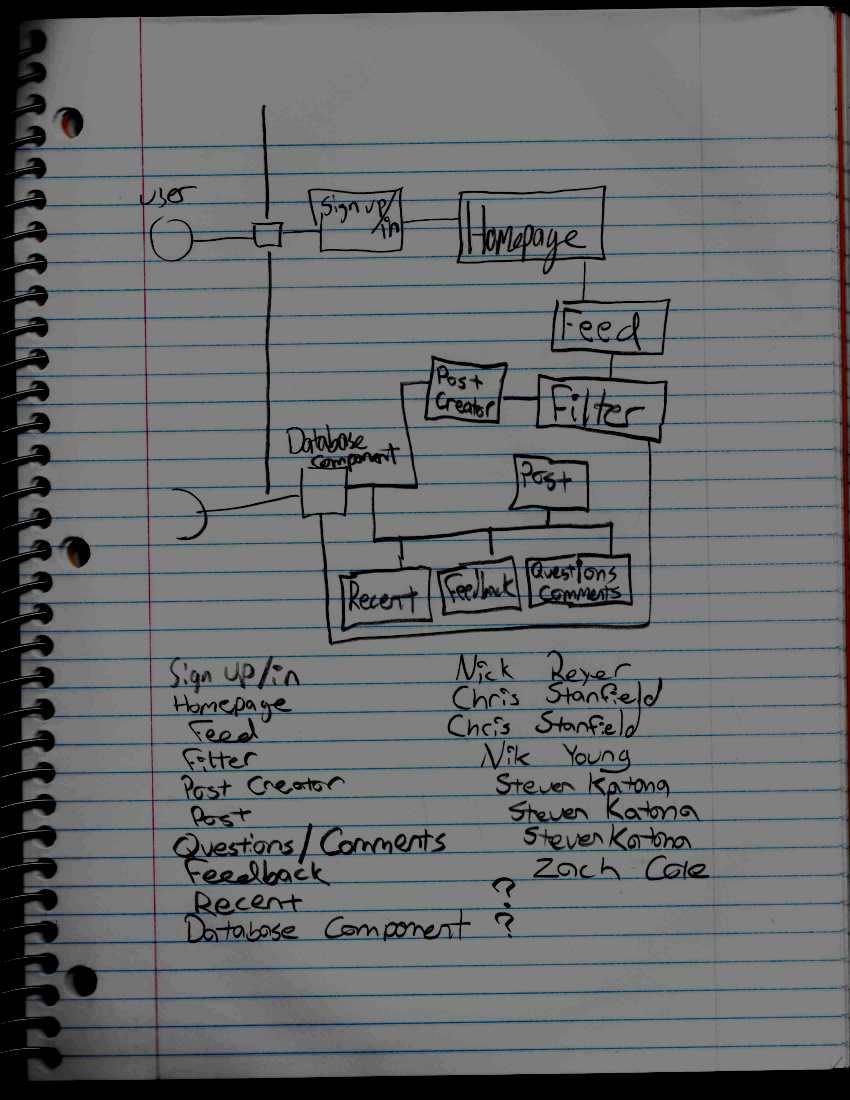 User
Sign up/
in
Homepage
Feed
Post
Creator
Filter
Database
component
Post
Recent
Feedback
Questions
Comments
Sign up/in Nick Reyer
Homepage Chris Stanfield
Feed Chris Stanfield
Filter Nik Young
Post Creator Steven Katona
Post Steven Katona
Questions/Comments Steven Katona
Feedback Zach Cole
Recent ?
Database Component ?